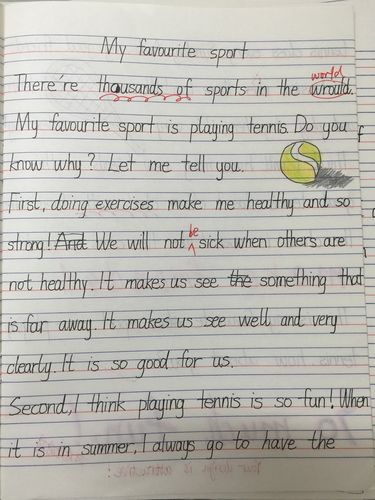 My favourite sport
world
There're thousands of sports in the wrould.
My favourite sport is playing tennis. Do you
know why? Let me tell you.
First, doing exercises make me healthy and so
be
strong! And We will not sick when others are
not healthy. It makes us see the something that
is far away. It makes us see well and very
clearly. It is so good for us.
Second, I think playing tennis is so fun! When
it is in summer, I always go to have the